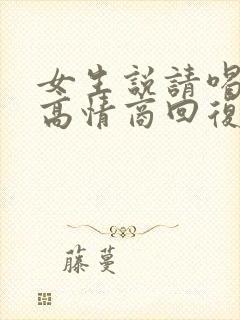 女生説請喝
高情商回復
藤蔓